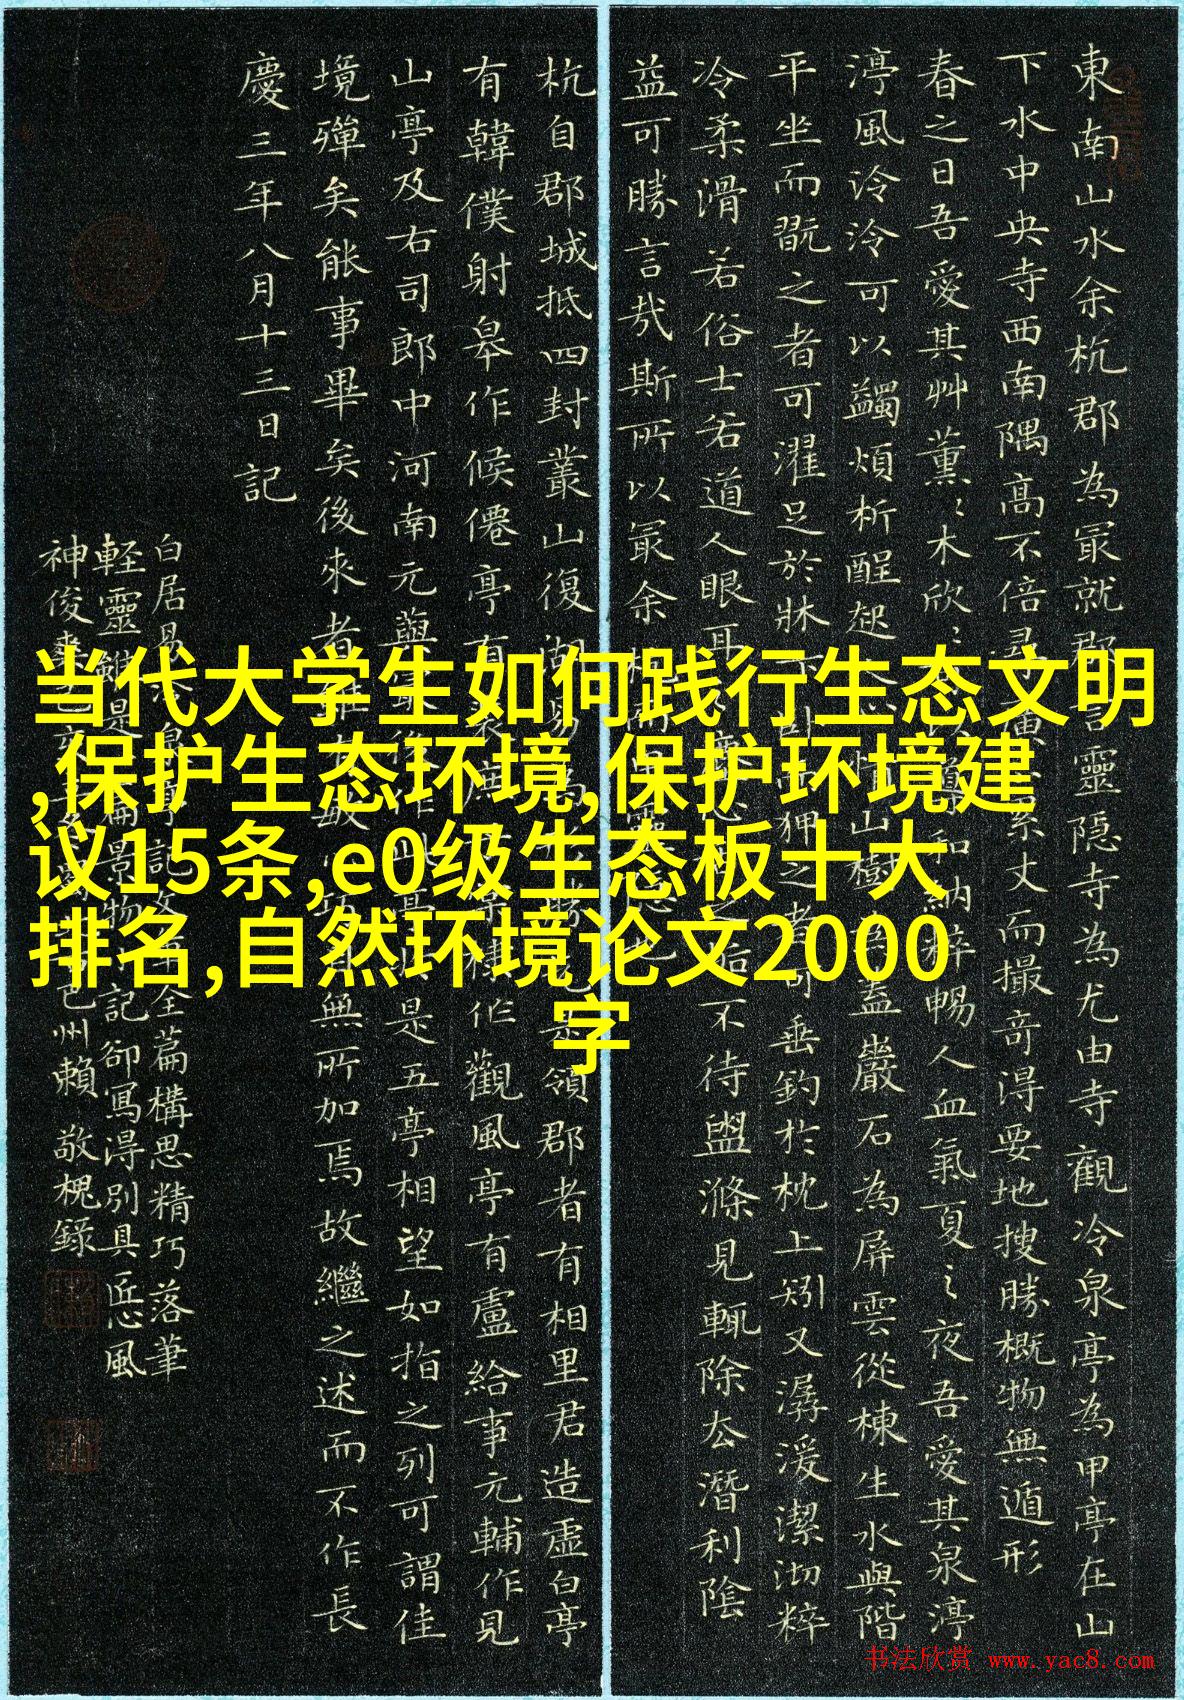 東南山水余杭郡為冣就郡言靈隐寺為尤由寺觀冷泉亭為甲亭在山
下水中央寺西南隅高不倍尋廣不累丈而撮竒得要地搜勝概物無遁形
春之日吾愛其艸薰〻木欣〻可以導和納粹暢人血氣夏之夜吾愛其泉渟
渟風泠泠可以蠲煩析酲起人心情山樹為盖巖石為屏雲從棟生水與階
平坐而翫之者可濯足於牀下卧而狎之者可垂釣於枕上矧又潺湲潔沏粹
冷柔滑若俗士若道人眼耳之塵心舌之垢不待盥滌見輒除去潛利陰
益可勝言哉斯所以冣余杭而甲靈隐也
杭自郡城抵四封叢山復湖易為形勝先是領郡者有相里君造虛白亭
有韓僕射皋作候僊亭有裴庶子棠棣作觀風亭有盧給事元輔作見
山亭及右司郎中河南元藇最後作此亭於是五亭相望如指之列可謂佳
境殫矣能事畢矣後來者雖有敏心巧目無所加焉故繼之述而不作長
慶三年八月十三日記
白居易冷泉亭記全篇構思精巧落筆
軽靈雖是篇景物小記卻寫得別具匠心風
神俊爽巴州賴敬槐錄
当代大学生如何践行生态文明
,保护生态环境,保护环境建
议15条,e0级生态板十大
排名,自然环境论文2000
字
书法欣赏 www.yac8.com